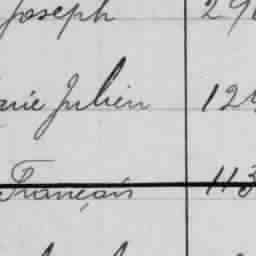 Joseph
arie Julien 12
François 113